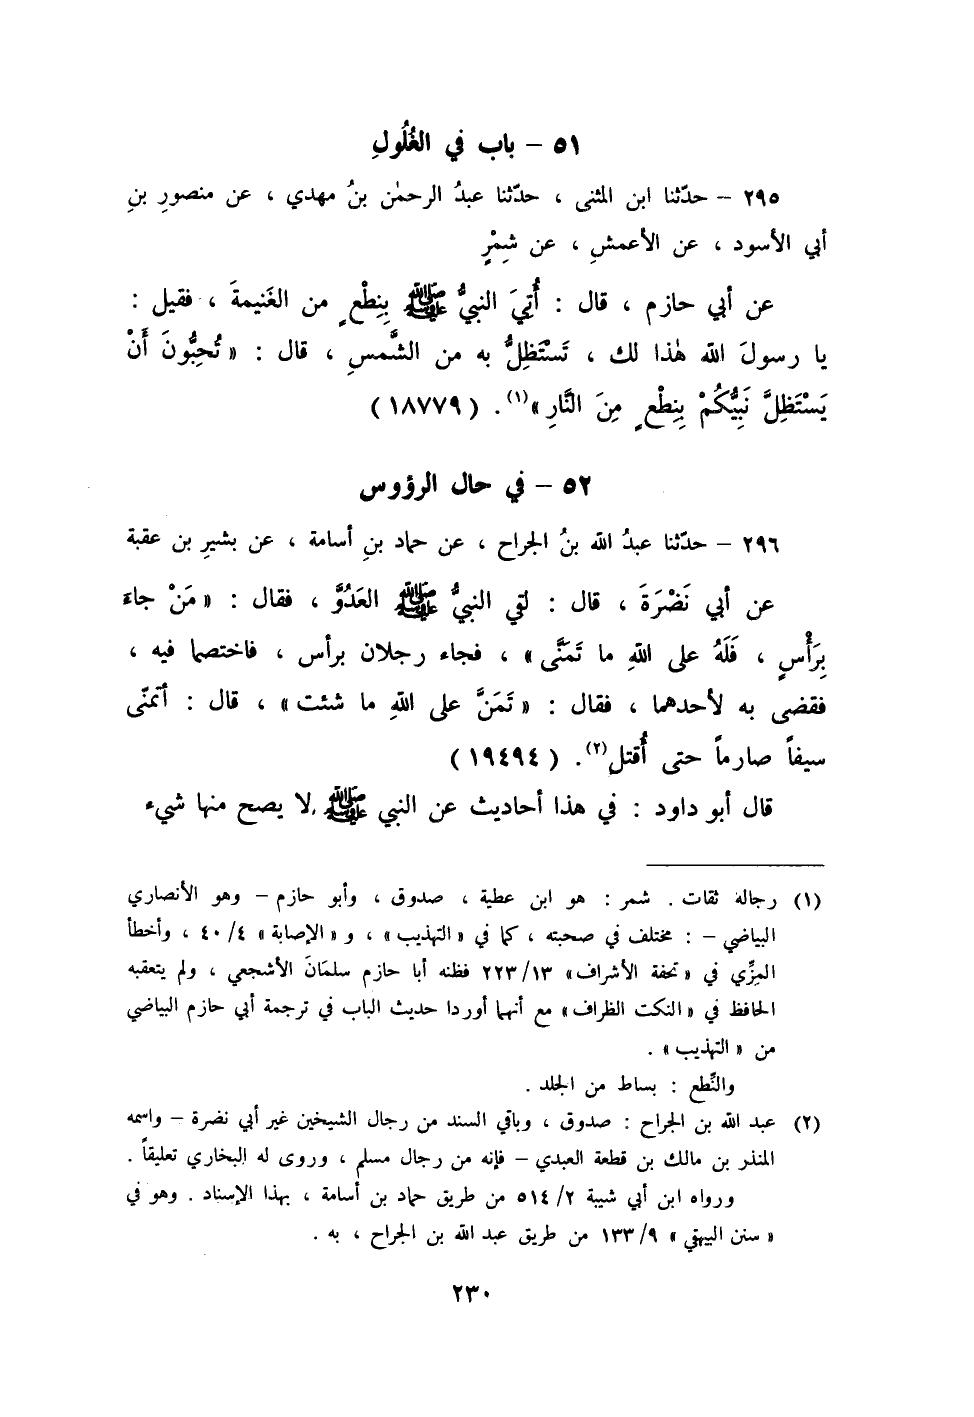 ٥١ – باب في الغُلُولِ
٢٩٥ – حدّثنا ابن المثنى ، حدّثنا عبدُ الرحمٰن بنُ مهدي ، عن منصورِ بنِ
أبي الأسود ، عن الأعمشِ ، عن شِمْرٍ
عن أبي حازم ، قال : أُتِيَ النبيُّ ﷺ بِنِطْعٍ من الغَنيمةَ ، فقيل :
يا رسولَ الله هٰذا لك ، تَسْتَظِلُّ به من الشَّمسِ ، قال : « تُحِبُّونَ أَنْ
يَسْتَظِلَّ نَبِيُّكُمْ بِنِطْعٍ مِنَ النَّارِ »(١). (١٨٧٧٩)
٥٢ – في حال الرؤوس
٢٩٦ – حدّثنا عبدُ الله بنُ الجراح ، عن حماد بنِ أسامة ، عن بشيرِ بن عقبة
عن أبي نَضْرَةَ ، قال : لقي النبيُّ ﷺ العَدُوَّ ، فقال : « مَنْ جاءَ
بِرَأْسٍ ، فَلَهُ على اللهِ ما تَمَنَّى » ، فجاء رجلان برأس ، فاختصما فيه ،
فقضى به لأحدهما ، فقال : « تَمَنَّ على اللهِ ما شئت » ، قال : أتمنّى
سيفاً صارماً حتى أُقتلِ(٢). (١٩٤٩٤)
قال أبو داود : في هذا أحاديث عن النبي ﷺ ، لا يصح منها شيء
(١) رجاله ثقات . شمر : هو ابن عطية ، صدوق ، وأبو حازم – وهو الأنصاري
البياضي – : مختلف في صحبته ، كما في « التهذيب » ، و « الإصابة » ٤٠/٤ ، وأخطأ
المِزِّي في « تحفة الأشراف » ٢٢٣/١٣ فظنه أبا حازم سلمَانَ الأشجعي ، ولم يتعقبه
الحافظ في « النكت الظراف » مع أنهما أوردا حديث الباب في ترجمة أبي حازم البياضي
من « التهذيب » .
والنَّطع : بساط من الجلد .
(٢) عبد الله بن الجراح : صدوق ، وباقي السند من رجال الشيخين غير أبي نضرة – واسمه
المنذر بن مالك بن قطعة العبدي – فإنه من رجال مسلم ، وروى له البخاري تعليقاً .
ورواه ابن أبي شيبة ٥١٤/٢ من طريق حماد بن أسامة ، بهذا الإسناد . وهو في
« سنن البيهقي » ١٣٣/٩ من طريق عبد الله بن الجراح ، به .
٢٣٠